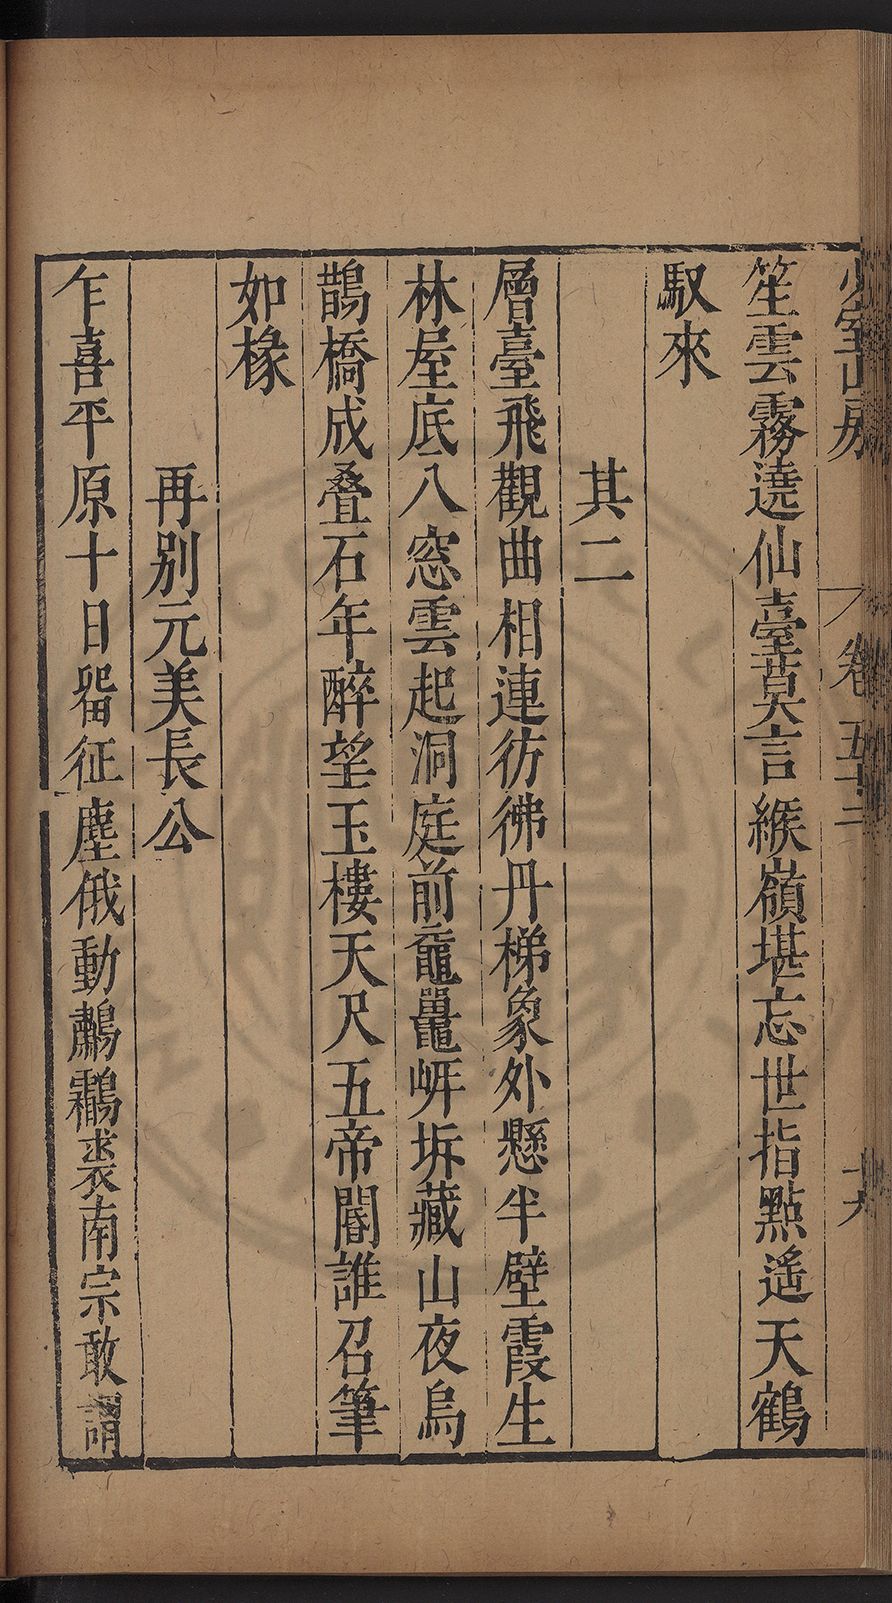 少室山房
卷五十二
笙雲霧遶仙臺莫言緱嶺堪忘世指點遥天鶴
馭來
其二
層臺飛觀曲相連彷彿丹梯象外懸半壁霞生
林屋底八窓雲起洞庭前黿鼉㟁坼藏山夜烏
鵲橋成叠石年醉望玉樓天尺五帝閽誰召筆
如椽
再别元美長公
乍喜平原十日留征塵俄動鷫鸘裘南宗敢謂